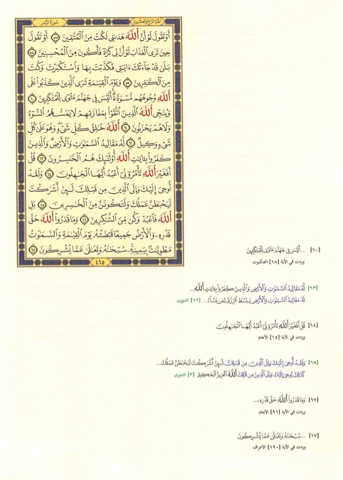 سورة الزمر
أَوْ تَقُولَ لَوْ أَنَّ اللَّهَ هَدَىٰنِى لَكُنتُ مِنَ الْمُتَّقِينَ ۝ أَوْ تَقُولَ
حِينَ تَرَى الْعَذَابَ لَوْ أَنَّ لِى كَرَّةً فَأَكُونَ مِنَ الْمُحْسِنِينَ ۝
بَلَىٰ قَدْ جَآءَتْكَ ءَايَٰتِى فَكَذَّبْتَ بِهَا وَاسْتَكْبَرْتَ وَكُنتَ
مِنَ الْكَٰفِرِينَ ۝ وَيَوْمَ الْقِيَٰمَةِ تَرَى الَّذِينَ كَذَبُوا۟ عَلَى
اللَّهِ وُجُوهُهُم مُّسْوَدَّةٌ أَلَيْسَ فِى جَهَنَّمَ مَثْوًى لِّلْمُتَكَبِّرِينَ ۝
وَيُنَجِّى اللَّهُ الَّذِينَ اتَّقَوْا۟ بِمَفَازَتِهِمْ لَا يَمَسُّهُمُ السُّوٓءُ
وَلَا هُمْ يَحْزَنُونَ ۝ اللَّهُ خَٰلِقُ كُلِّ شَىْءٍ وَهُوَ عَلَىٰ كُلِّ
شَىْءٍ وَكِيلٌ ۝ لَّهُۥ مَقَالِيدُ السَّمَٰوَٰتِ وَالْأَرْضِ وَالَّذِينَ
كَفَرُوا۟ بِـَٔايَٰتِ اللَّهِ أُو۟لَٰٓئِكَ هُمُ الْخَٰسِرُونَ ۝ قُلْ
أَفَغَيْرَ اللَّهِ تَأْمُرُوٓنِّىٓ أَعْبُدُ أَيُّهَا الْجَٰهِلُونَ ۝ وَلَقَدْ
أُوحِىَ إِلَيْكَ وَإِلَى الَّذِينَ مِن قَبْلِكَ لَئِنْ أَشْرَكْتَ
لَيَحْبَطَنَّ عَمَلُكَ وَلَتَكُونَنَّ مِنَ الْخَٰسِرِينَ ۝ بَلِ
اللَّهَ فَاعْبُدْ وَكُن مِّنَ الشَّٰكِرِينَ ۝ وَمَا قَدَرُوا۟ اللَّهَ حَقَّ
قَدْرِهِۦ وَالْأَرْضُ جَمِيعًا قَبْضَتُهُۥ يَوْمَ الْقِيَٰمَةِ وَالسَّمَٰوَٰتُ
مَطْوِيَّٰتٌۢ بِيَمِينِهِۦ سُبْحَٰنَهُۥ وَتَعَٰلَىٰ عَمَّا يُشْرِكُونَ ۝
٤٦٥
[٦٠] ...أَلَيْسَ فِى جَهَنَّمَ مَثْوًى لِّلْمُتَكَبِّرِينَ
وردت في الآية [٦٨] العنكبوت
[٦٣] لَّهُۥ مَقَالِيدُ السَّمَٰوَٰتِ وَالْأَرْضِ وَالَّذِينَ كَفَرُوا۟ بِـَٔايَٰتِ اللَّهِ...
لَهُۥ مَقَالِيدُ السَّمَٰوَٰتِ وَالْأَرْضِ يَبْسُطُ الرِّزْقَ لِمَن يَشَآءُ... [١٢] الشورى
[٦٤] قُلْ أَفَغَيْرَ اللَّهِ تَأْمُرُوٓنِّىٓ أَعْبُدُ أَيُّهَا الْجَٰهِلُونَ
وردت في الآية [١٤] الأنعام
[٦٥] وَلَقَدْ أُوحِىَ إِلَيْكَ وَإِلَى الَّذِينَ مِن قَبْلِكَ لَئِنْ أَشْرَكْتَ لَيَحْبَطَنَّ عَمَلُكَ...
كَذَٰلِكَ يُوحِىٓ إِلَيْكَ وَإِلَى الَّذِينَ مِن قَبْلِكَ اللَّهُ الْعَزِيزُ الْحَكِيمُ [٣] الشورى
[٦٧] وَمَا قَدَرُوا۟ اللَّهَ حَقَّ قَدْرِهِۦ...
وردت في الآية [٩١] الأنعام
[٦٧] ...سُبْحَٰنَهُۥ وَتَعَٰلَىٰ عَمَّا يُشْرِكُونَ
وردت في الآية [١٩٠] الأعراف